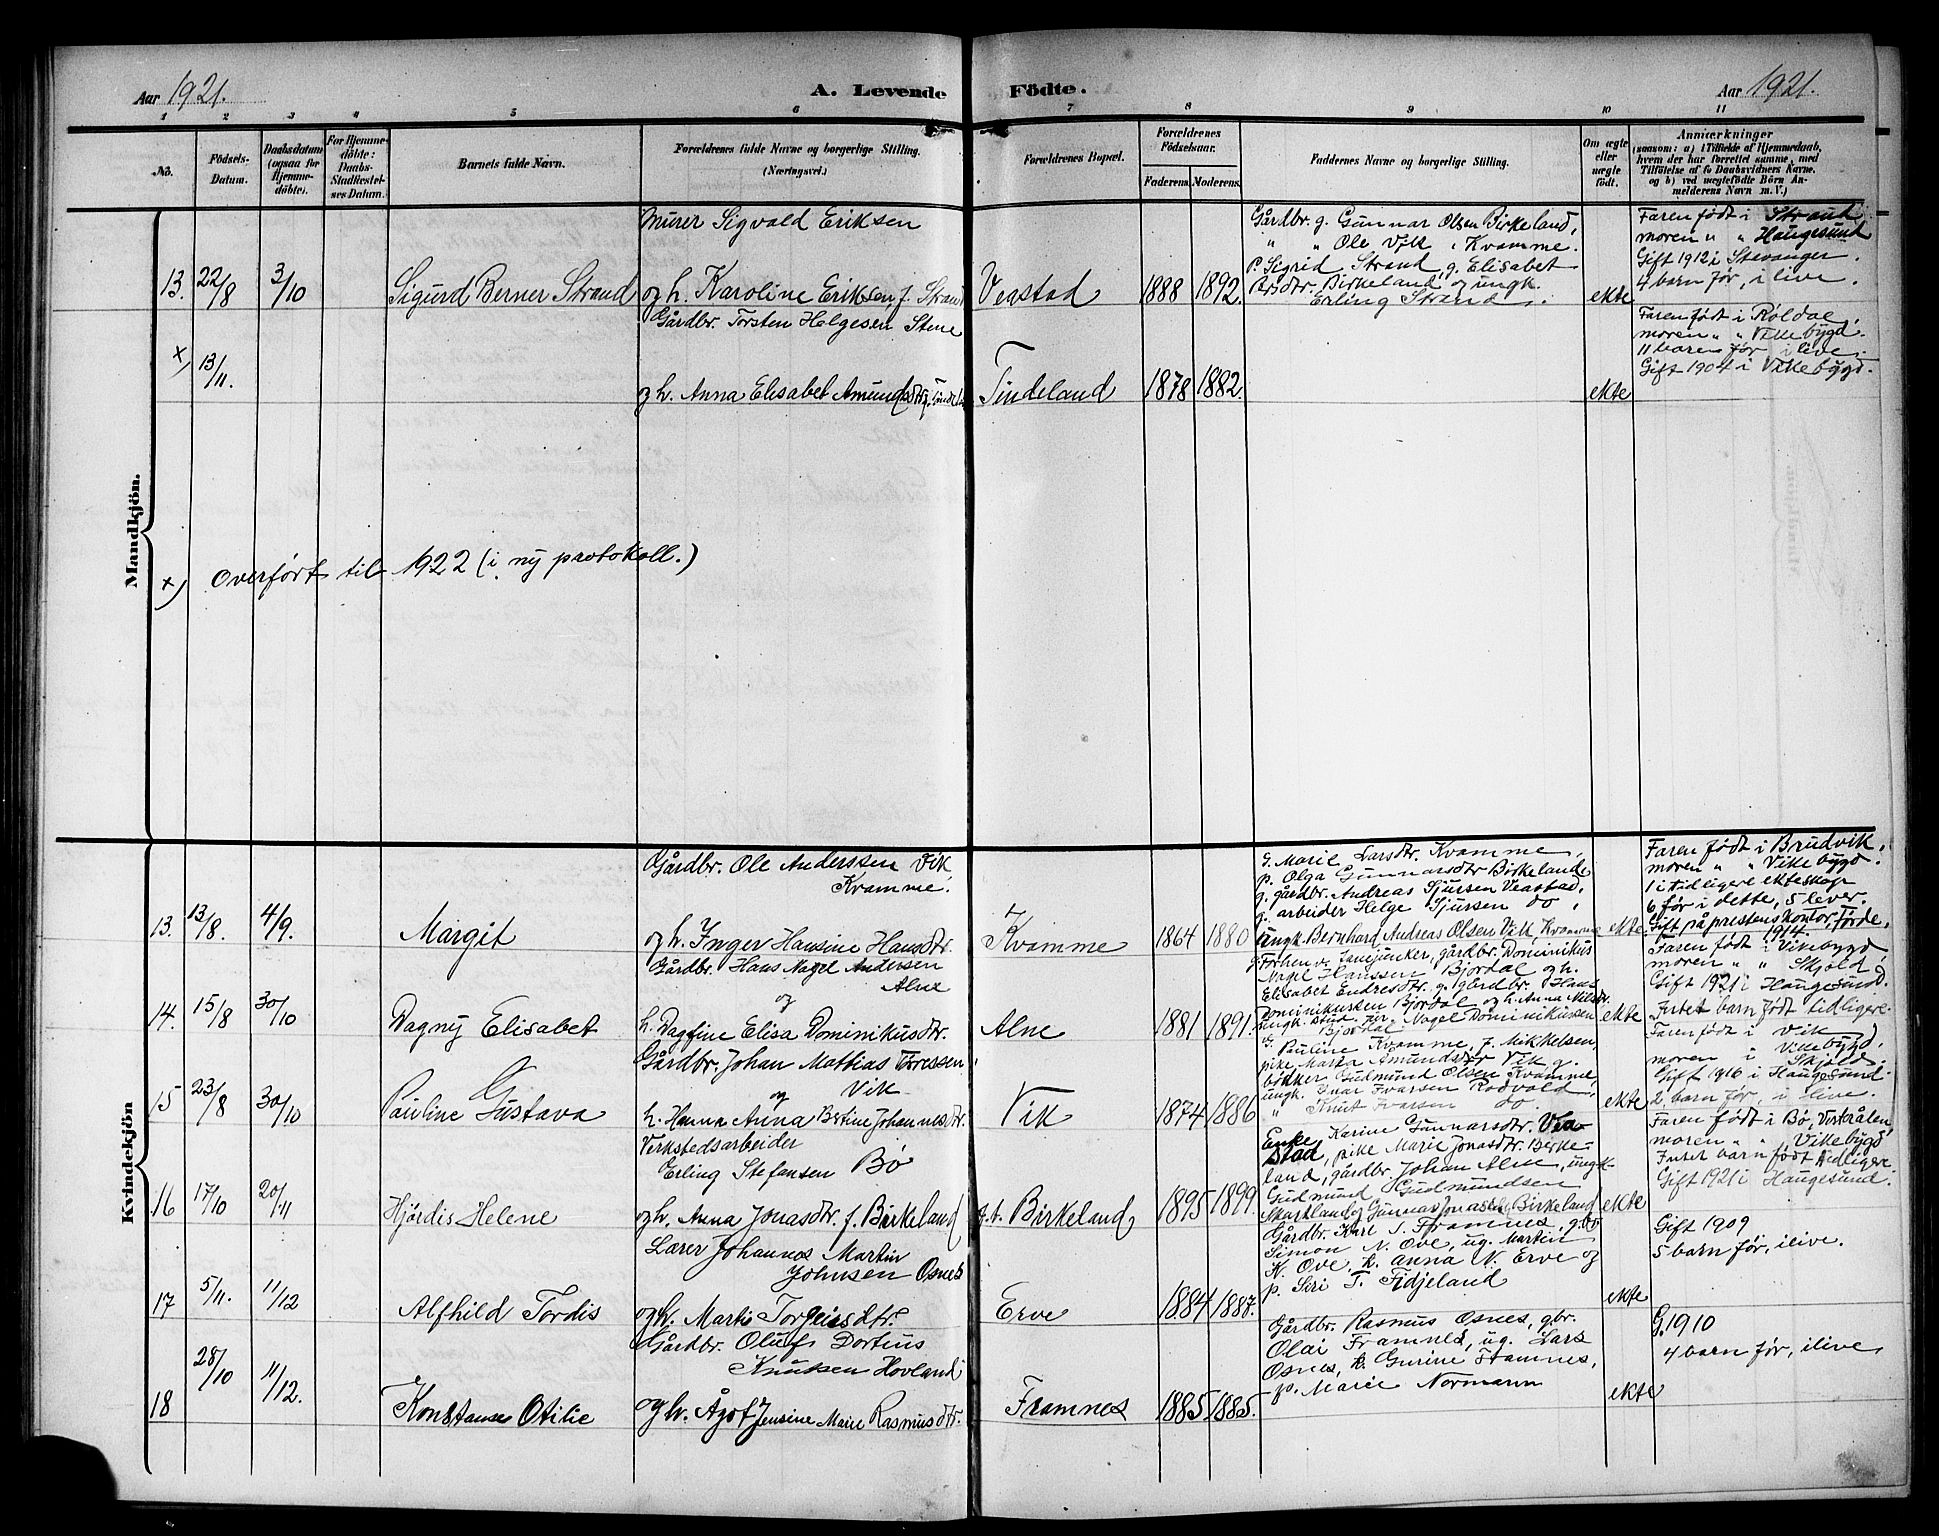 Aar 1921.
A. Levende Födte.
Aar 1921.
1 2 3 4 5 6 7 8 9 10 11
No.
Födsels-Datum.
Daabsdatum (ogsaa for Hjemme-döbte).
For Hjemme-döbte: Daabs-Stadfæstel-ses Datum.
Barnets fulde Navn.
Forældrenes fulde Navne og borgerlige Stilling.
(Næringsvei.)
Forældrenes Bopæl.
Forældrenes Födselsaar.
Faderens. Moderens.
Faddernes Navne og borgerlige Stilling.
Om ægte eller uægte födt.
Anmærkninger
(saasom: a) i Tilfælde af Hjemmedaab,
hvem der har forrettet samme, med
Tilföielse af to Daabsvidners Navne.
og b) ved uægtefödte Börn An-
melderens Navn m. V.)
Mandkjön.
13. 22/8 3/10 Sigurd Berner Strand
Murer Sigvald Eriksen
og h. Karoline Eriksen f. Strand
Veastad 1888 1892.
Gårdbr. g. Gunnar Olsen Birkeland,
" " Ole Vik, Kvamme.
p. Sigrid Strand, g. Elisabet
Birkeland og ungk.
Erling Strand.
ekte
Faren født i Strand
moren " " Haugesund
Gift 1912 i Stavanger.
4 barn før, i live.
x) 13/11.
Gårdbr. Torsten Helgesen Stene
og h. Anna Elisabet Amundsdtr.
Tindeland 1878 1882.
ekte
Faren født i Røldal,
moren " " Vikebygd.
11 barn før i live.
Gift 1904 i Vikebygd.
x) Overført til 1922 (i ny protokoll.)
Kvindekjön
13. 13/8. 4/9. Margit
Gårdbr. Ole Anderssen Vik
Kvamme.
og h. Inger Hansine Hansdtr.
Kvamme 1864 1880
g. Marie Larsdtr. Kvamme,
p. Olga Gunnarsdtr Birkeland
g. gårdbr. Andreas Sjursen Veastad,
g. arbeider Helge Sjursen do,
ungk. Bernhard Andreas Olsen Vik, Kvamme
ekte.
Faren født i Brudvik,
moren " " Vikebygd.
1 i tidligere ekteskap
6 før i dette, 5 lever.
Gift på prestens kontor, Førde,
1914.
14. 15/8 30/10 Dagny Elisabet
Gårdbr. Hans Nagel Andersen
Alne
og
h. Dagfine Elisa Dominikusdtr.
Alne 1881 1891.
gårdbr. Dominikus
Nagel Hanssen Bjordal og h.
Elisabet Endresdtr. g. gårdbr. Hans
Dominikussen Bjordal og h. Anna Nilsdtr.
ungk. stud. Nagel Dominikussen
Bjordal
ekte
Faren født i Vikebygd
moren " " Skjold
Gift 1921 i Haugesund.
Intet barn født tidligere.
15 23/8 30/10 Pauline Gustava
Gårdbr. Johan Mathias Torressen
Vik
og
h. Hanna Anna Bertine Johannesdtr.
Vik 1874 1886
g. Pauline Kvamme, f. Mikkelsen,
pike Marta Amundsdtr Vik g.
bøkker Gudmund Olsen Kvamme,
ungk. Ivar Ivarsen Rødvald
" Knut Ivarsen do.
ekte
Faren født i Vik
moren i Vikebygd,
Skjold.
Gift 1916 i Haugesund.
2 barn før, i live.
16 17/10 20/11 Hjørdis Helene
Verkstedsarbeider
Erling Stefansen Bø
og h. Anna Jonasdtr. f. Birkeland
f.t. Birkeland 1895 1899.
Enke Karine Gunnarsdtr. Vea-
stad, pike Marie Jonasdtr. Birke-
land, gårdbr Johan Alne, ungk.
Gudmund Gudmundsen
Skartland og Gunnar Birkeland
ekte
Faren født i Bø, Vesterålen,
moren " " Vikebygd
Intet barn født tidligere.
Gift 1921 i Haugesund.
17 5/11. 11/12 Alfhild Tordis
Lærer Johannes Martin
Johnsen Osnes
og h. Marta Torgeisdtr.
Erve 1884 1887.
Gårdbr. Karl S. Framnes, g.br
Simon N. Ove, ug. Martin
N. Ove, k. Anna N. Erve og
p. Siri T. Fidjeland
ekte
Gift 1909
5 barn før, i live.
18 28/10 11/12. Konstanse Otilie
Gårdbr. Oluf Dortius
Knutsen Hovland
og h. Ågot Jensine Marie Rasmusdtr.
Framnes 1885 1885.
Gårdbr. Rasmus Osnes, gbr.
Olai Framnes, ug. Lars
Osnes, k. Gurine Framnes,
p. Marie Normann
ekte
G. 1910
4 barn før, i live